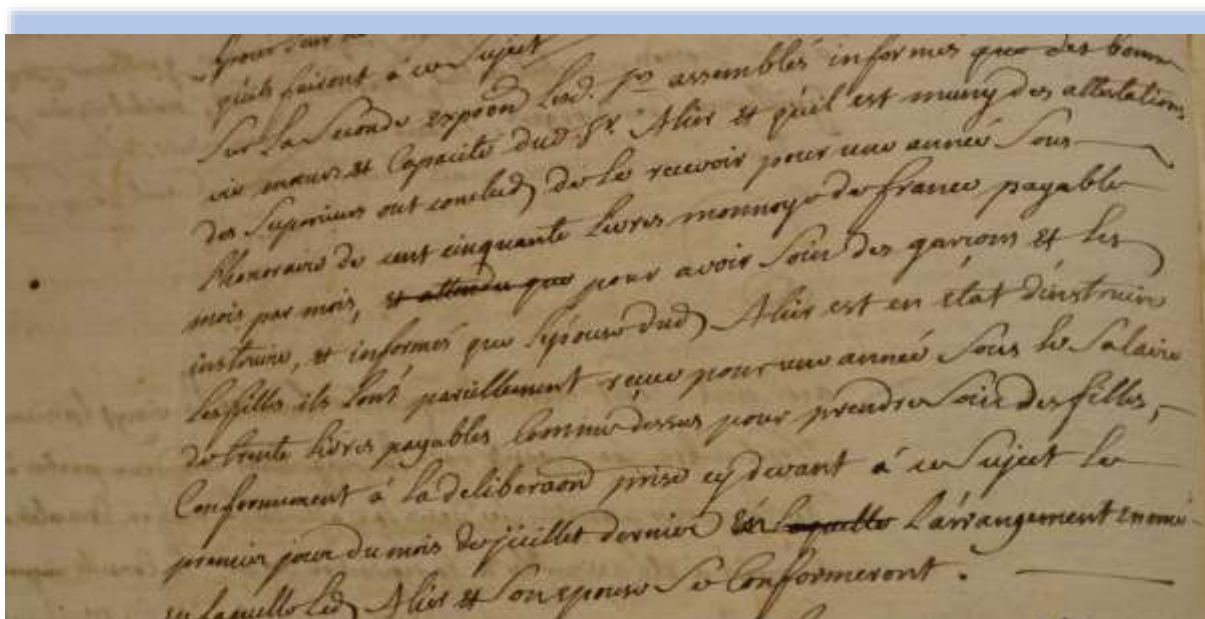 pour leur
qu'ils feront à ce sujet
Sur la Seconde expôon lesd. srs assemblés informés que des bonne
vie mœurs et Capacité dud Sr. Alier et qu'il est muny des attestations
des Superieurs ont conclud de le recevoir pour une année Sous
l'honoraire de cent cinquante livres monnoye de france payable
mois par mois, et attendu que pour avoir Soin des garçons et les
instruire, et informés que l'épouse dud Alier est en état d'instruire
les filles ils l'ont pareillement reçue pour une année Sous le Salaire
de trente livres payables Comme dessus pour prendre Soin des filles,
Conformement à la deliberaôn prise cy devant à ce Sujet le
premier jour du mois de juillet dernier laquelle L'arrangement
en laquelle led Alier et Son epouse Se Conformeront.